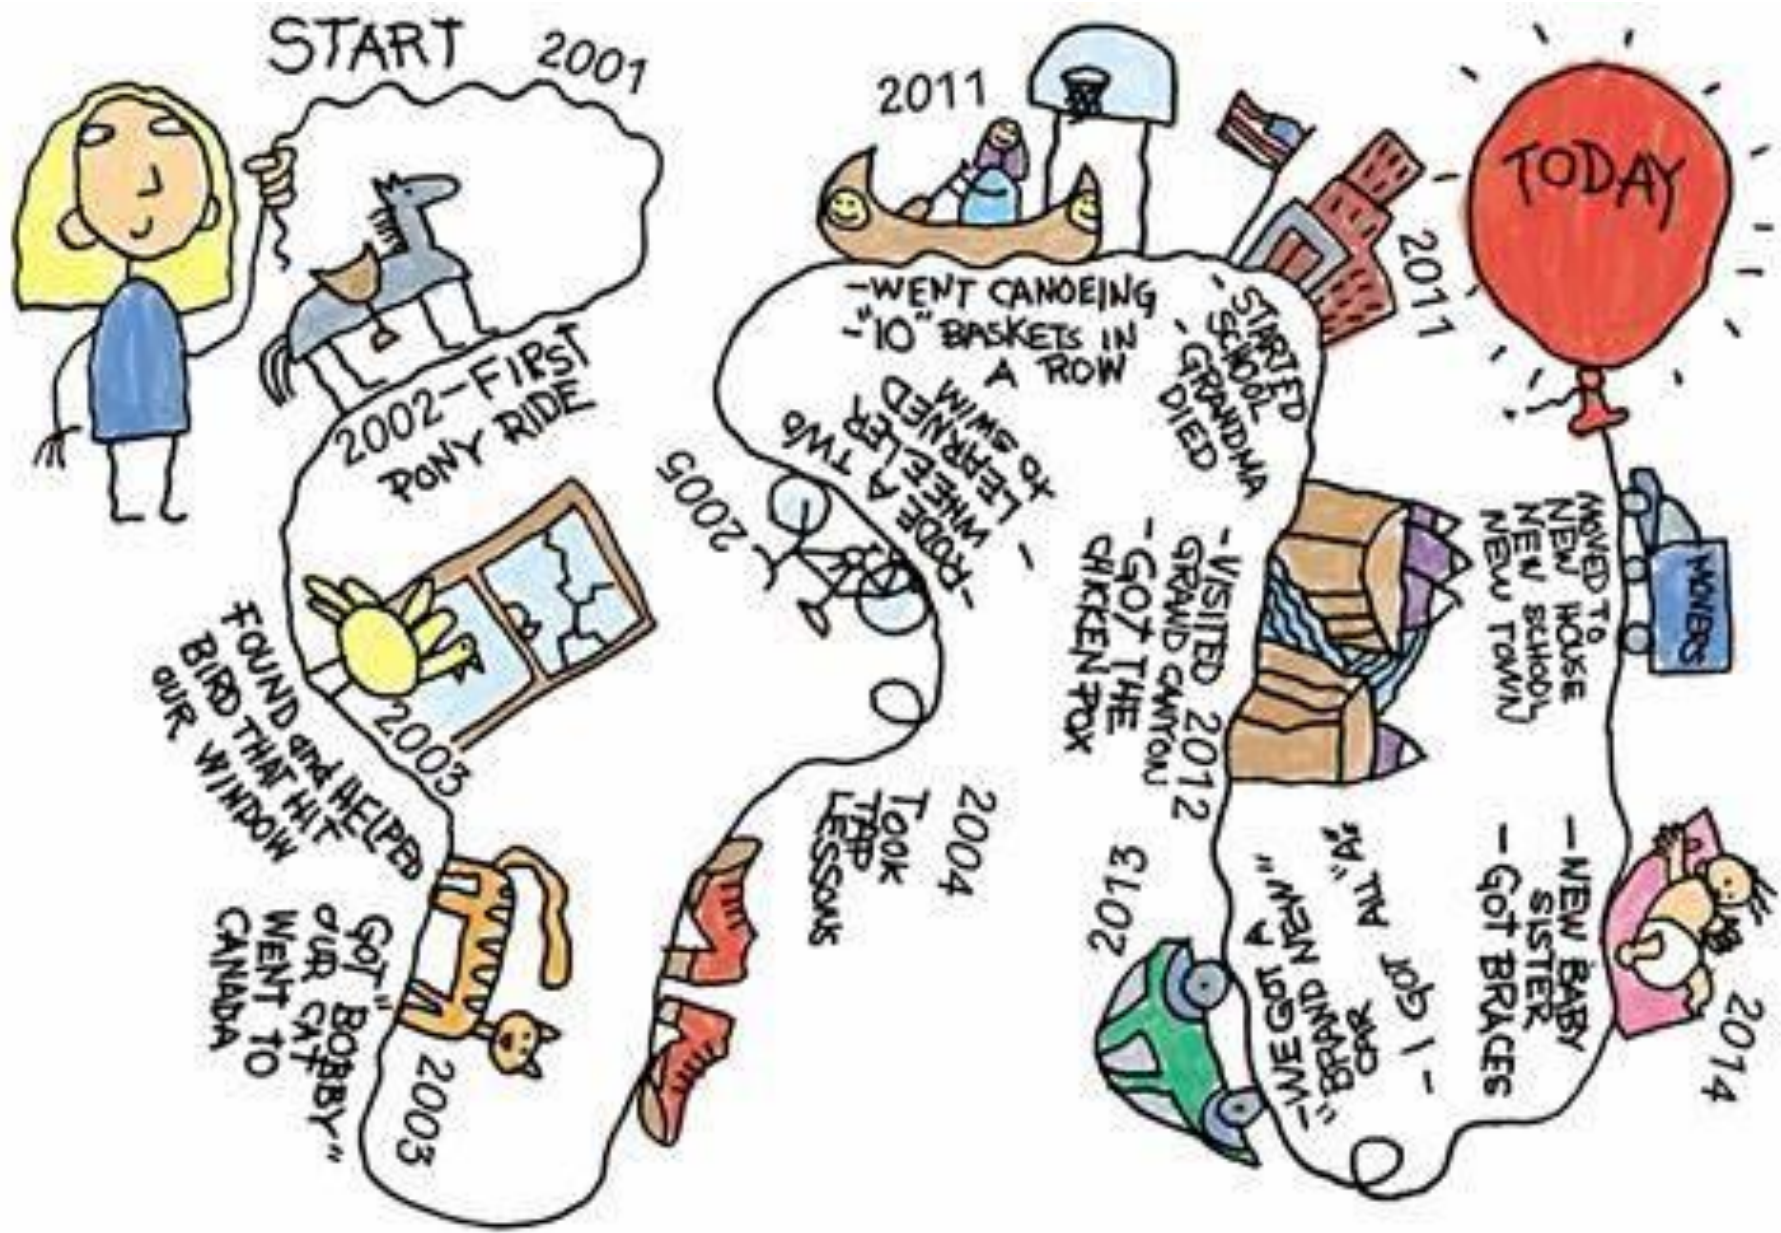 START
2001
2002-FIRST
PONY RIDE
FOUND and HELPED
BIRD THAT HIT
OUR WINDOW
2003
GOT "BOBBY"
OUR CAT
WENT TO
CANADA
2003
2004
TOOK
TAP
LESSONS
2005
-RODE A TWO
WHEELER
- LEARNED
TO SWIM
2011
-WENT CANOEING
-"10" BASKETS IN
A ROW
2011
- STARTED
SCHOOL
- GRANDMA
DIED
- VISITED 2012
GRAND CANYON
- GOT THE
CHICKEN POX
2013
-WE GOT A
"BRAND NEW"
CAR
- I GOT ALL "A"s
2014
- NEW BABY
SISTER
- GOT BRACES
MOVED TO
NEW HOUSE
NEW SCHOOL
NEW TOWN
MOVERS
TODAY